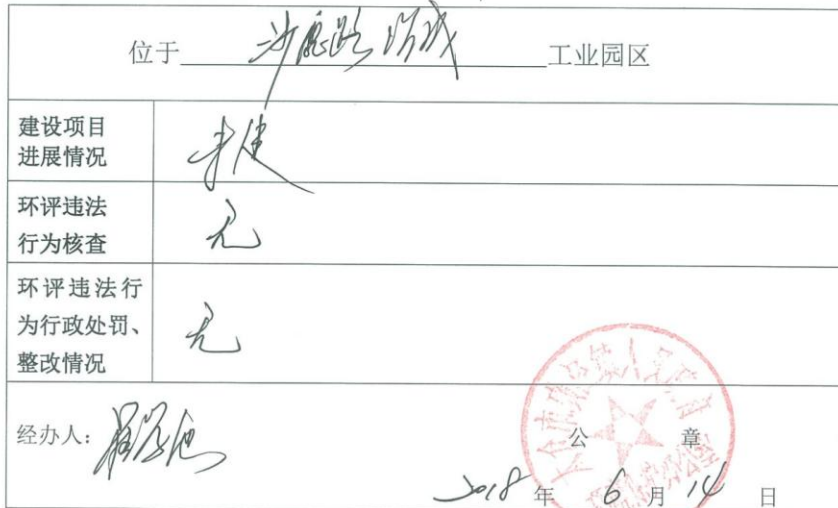 位于 工业园区
建设项目
进展情况
未建
环评违法
行为核查
无
环评违法行
为行政处罚、
整改情况
无
经办人:
公 章
2018 年 6 月 14 日